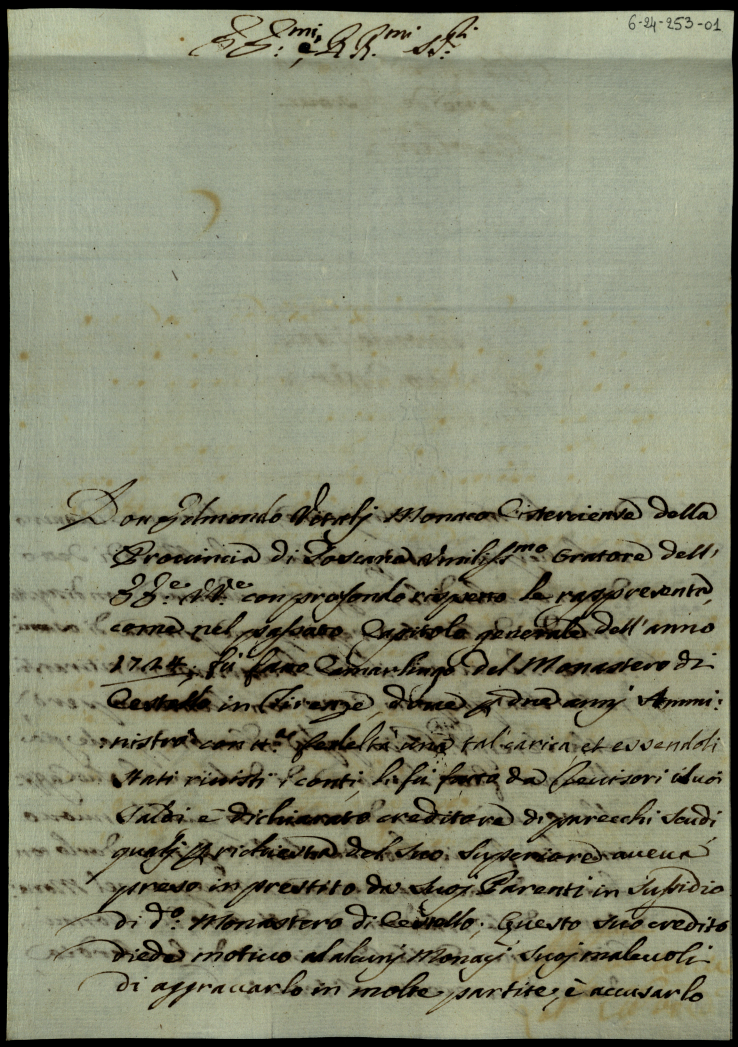 6-24-253-01
EE.mi, e RR.mi SS.ri
Don Edmondo Vitalj Monaco Cisterciense della
Provincia di Toscana umiliss.mo Oratore dell'
EE.e VV.e con profondo rispetto le rappresenta,
come nel passato Capitolo generale dell'anno
1744, fù fatto Camarlingo del Monastero di
Cestello in Firenze, dove p due annj Ammi:
nistrò con fedeltà una tal carica, et essendoli
stati rivisti i conti, li fù fatto da Revisori i suoi
Saldi e dichiarato creditore di parecchi scudi
qualj p richiesta del suo Superiore aveva
preso in prestito da suoj Parenti in Sussidio
di d.o Monastero di Cestello; Questo suo credito
diede motivo ad alcunj Monaci suoj malevoli
di aggravarlo in molte partite, è accusarlo